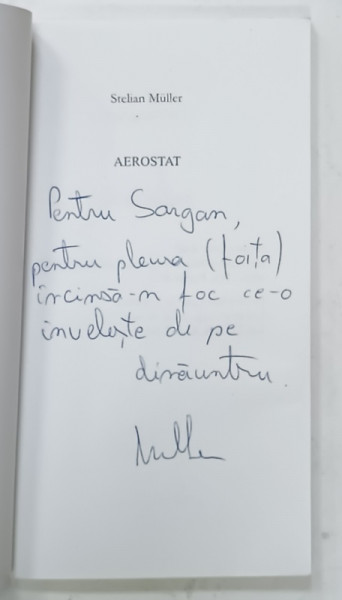 Stelian Müller
AEROSTAT
Pentru Sargan,
pentru pleura (foița)
încinsă-n foc ce-o
învelește de pe
dinăuntru.
Müller